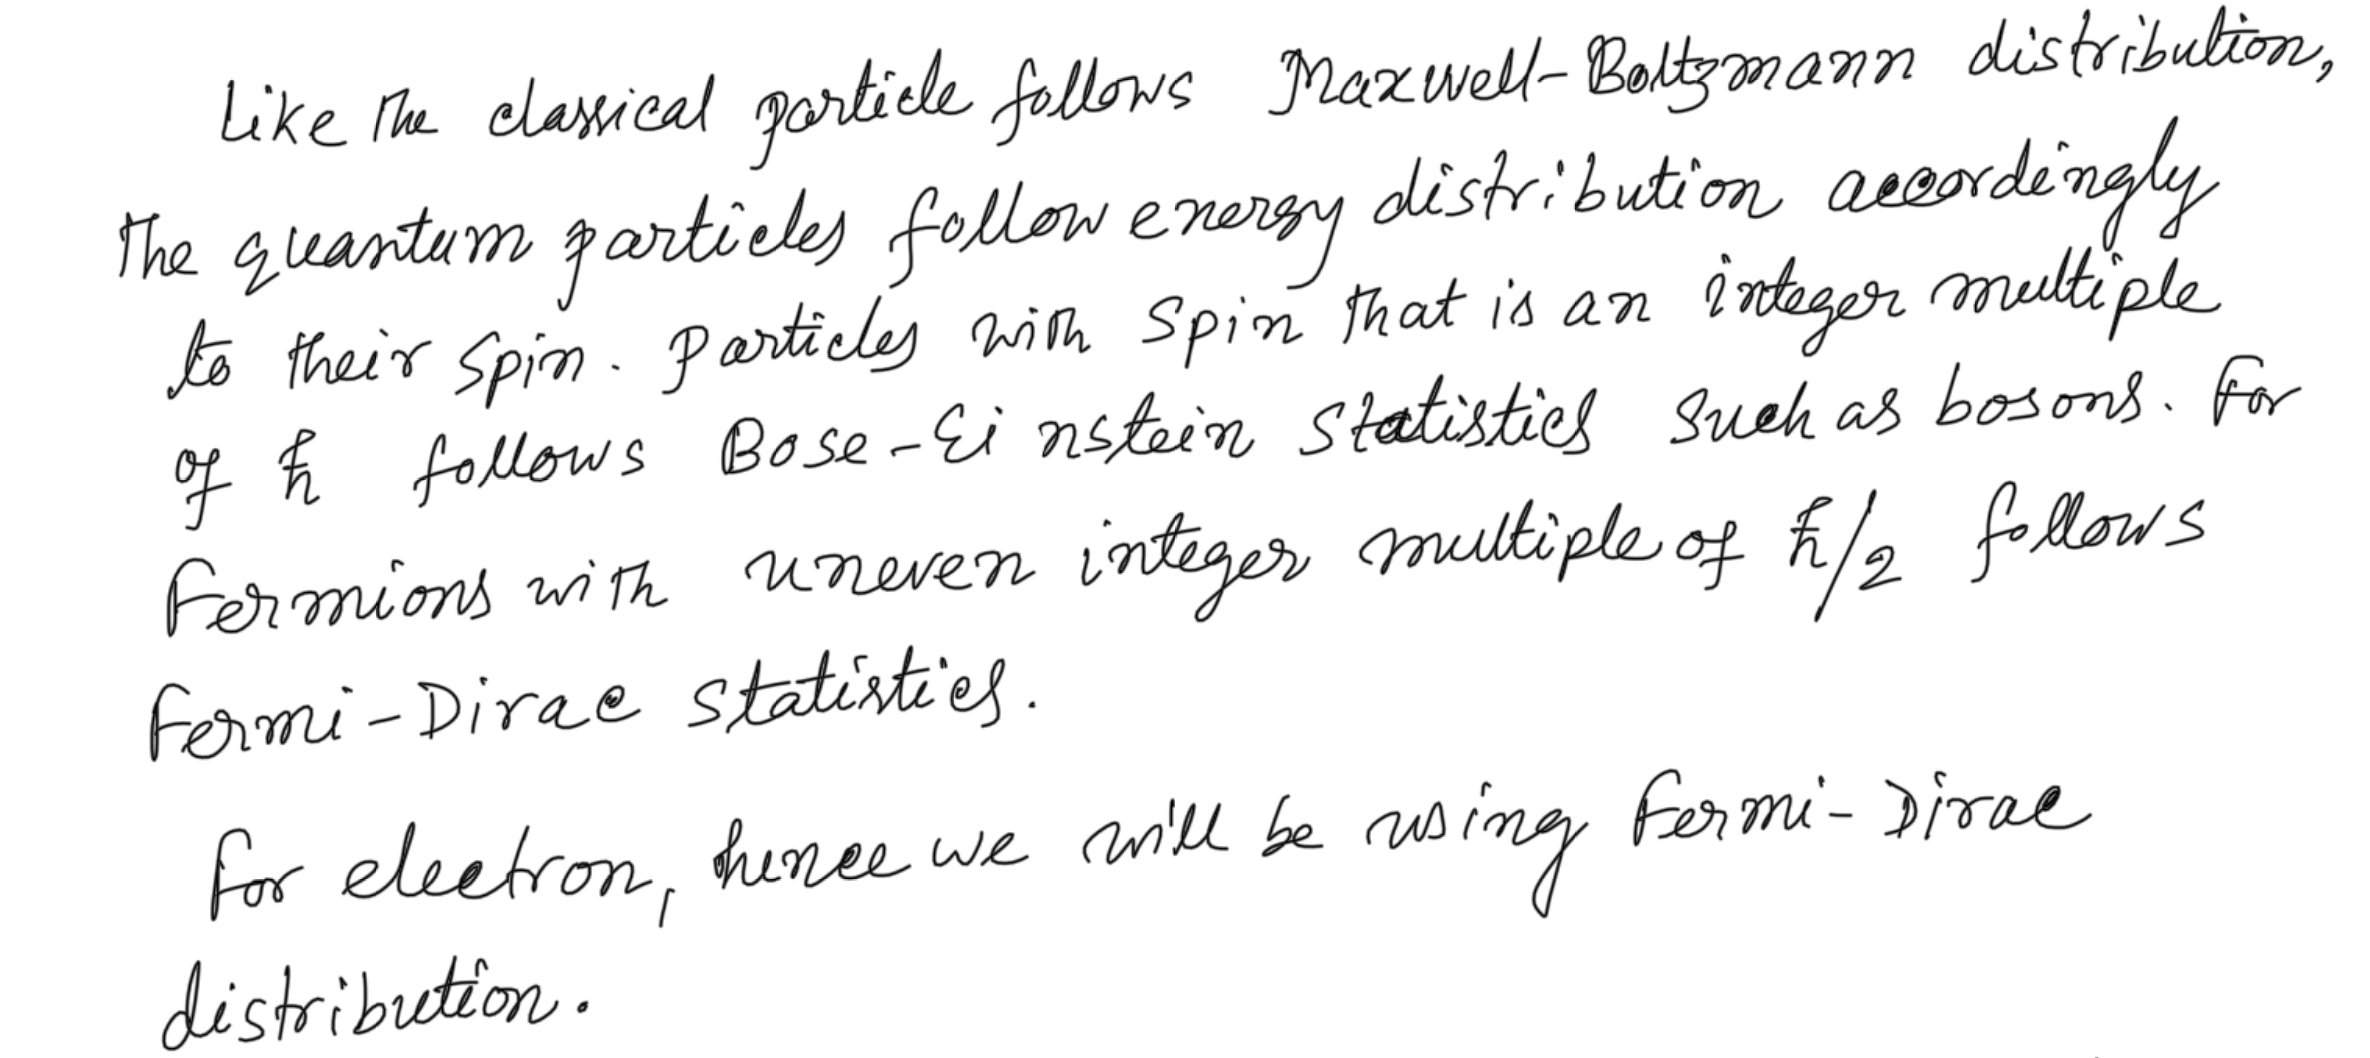 Like the classical particle follows Maxwell-Boltzmann distribution,
the quantum particles follow energy distribution accordingly
to their spin. Particles with spin that is an integer multiple
of ℏ follows Bose-Einstein statistics such as bosons. For
Fermions with uneven integer multiple of ℏ/2 follows
Fermi-Dirac statistics.
For electron, hence we will be using Fermi-Dirac
distribution.